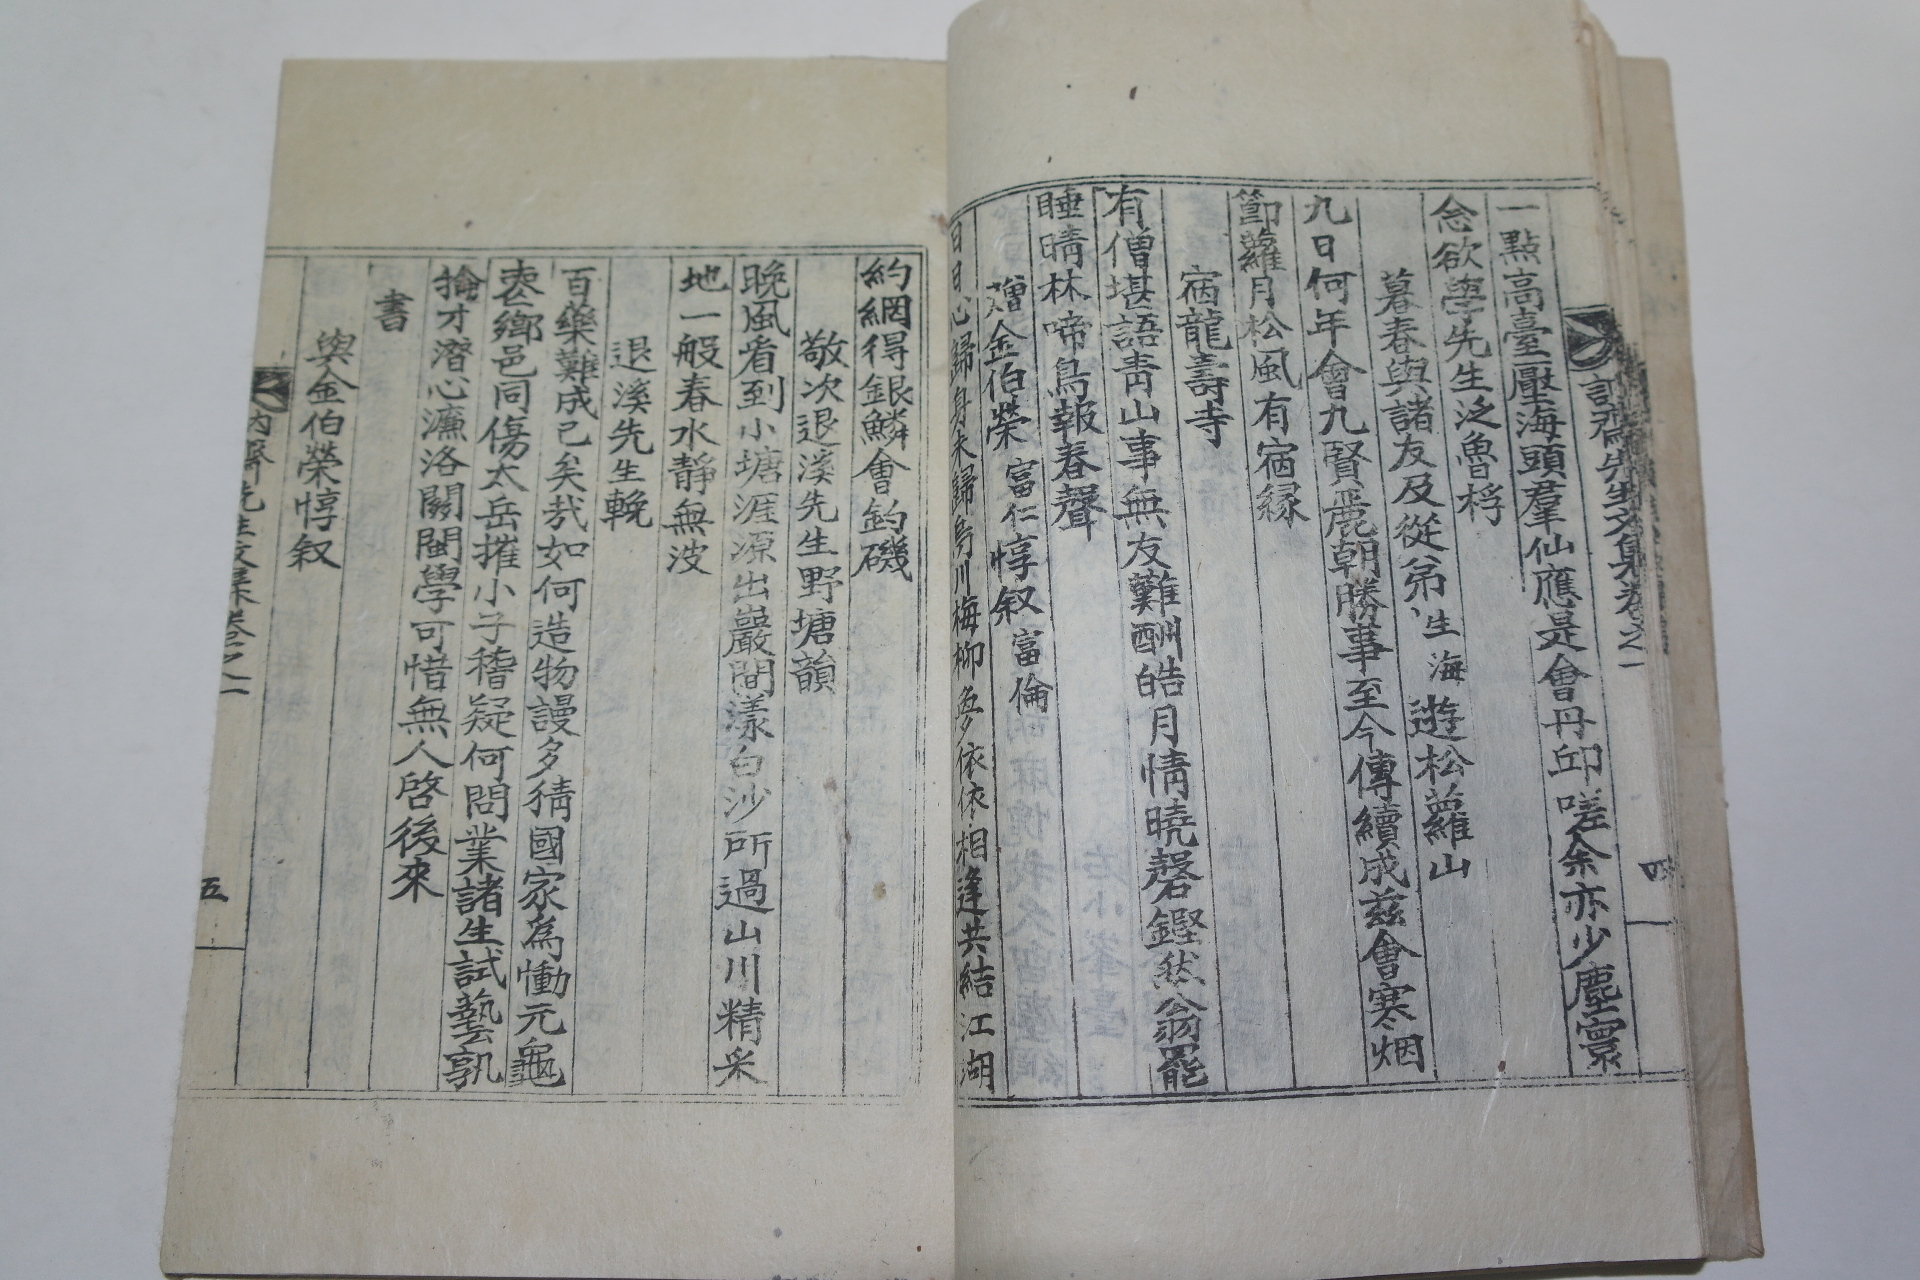 訥齋先生文集卷之一
四
一點高臺壓海頭羣仙應是會丹邱嗟余亦少塵寰
念欲學先生泛魯桴
暮春與諸友及從弟生海遊松蘿山
九日何年會九賢麗朝勝事至今傳續成玆會寒烟
節蘿月松風有宿緣
宿龍壽寺
有僧堪語靑山事無友難酬皓月情曉磬鏗然翁罷
睡晴林啼鳥報春聲
贈金伯榮富仁惇叙富倫
日日心歸身未歸烏川梅柳夢依依相逢共結江湖
約網得銀鱗會釣磯
敬次退溪先生野塘韻
晩風看到小塘涯源出巖間漾白沙所過山川精采
地一般春水靜無波
退溪先生輓
百樂難成已矣㢤如何造物謾多猜國家爲慟元龜
喪鄕邑同傷太岳摧小子稽疑何問業諸生試藝孰
掄才潛心濂洛關閩學可惜無人啓後來
書
與金伯榮惇叙
訥齋先生文集卷之一
五